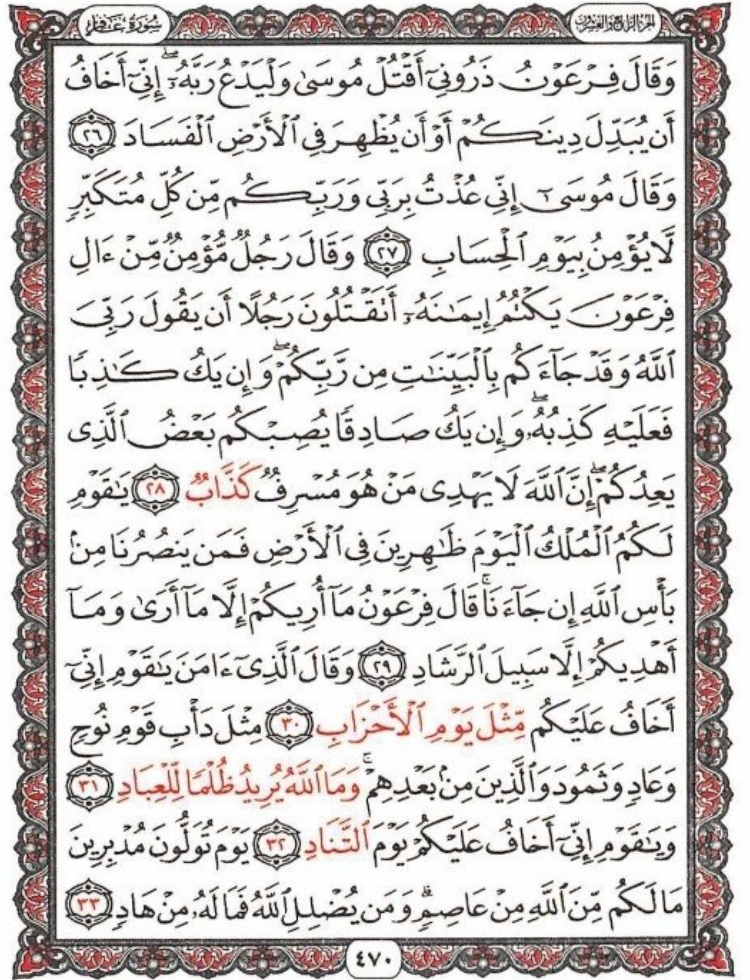 سُورَةُ غَافِرٍ
الجزء الرابع والعشرون
وَقَالَ فِرْعَوْنُ ذَرُونِىٓ أَقْتُلْ مُوسَىٰ وَلْيَدْعُ رَبَّهُۥٓۖ إِنِّىٓ أَخَافُ
أَن يُبَدِّلَ دِينَكُمْ أَوْ أَن يُظْهِرَ فِى ٱلْأَرْضِ ٱلْفَسَادَ ٢٦
وَقَالَ مُوسَىٰٓ إِنِّى عُذْتُ بِرَبِّى وَرَبِّكُم مِّن كُلِّ مُتَكَبِّرٍ
لَّا يُؤْمِنُ بِيَوْمِ ٱلْحِسَابِ ٢٧ وَقَالَ رَجُلٌ مُّؤْمِنٌ مِّنْ ءَالِ
فِرْعَوْنَ يَكْتُمُ إِيمَٰنَهُۥٓ أَتَقْتُلُونَ رَجُلًا أَن يَقُولَ رَبِّىَ
ٱللَّهُ وَقَدْ جَآءَكُم بِٱلْبَيِّنَٰتِ مِن رَّبِّكُمْۖ وَإِن يَكُ كَٰذِبًا
فَعَلَيْهِ كَذِبُهُۥۖ وَإِن يَكُ صَادِقًا يُصِبْكُم بَعْضُ ٱلَّذِى
يَعِدُكُمْۖ إِنَّ ٱللَّهَ لَا يَهْدِى مَنْ هُوَ مُسْرِفٌ كَذَّابٌ ٢٨ يَٰقَوْمِ
لَكُمُ ٱلْمُلْكُ ٱلْيَوْمَ ظَٰهِرِينَ فِى ٱلْأَرْضِ فَمَن يَنصُرُنَا مِنۢ
بَأْسِ ٱللَّهِ إِن جَآءَنَاۚ قَالَ فِرْعَوْنُ مَآ أُرِيكُمْ إِلَّا مَآ أَرَىٰ وَمَآ
أَهْدِيكُمْ إِلَّا سَبِيلَ ٱلرَّشَادِ ٢٩ وَقَالَ ٱلَّذِىٓ ءَامَنَ يَٰقَوْمِ إِنِّىٓ
أَخَافُ عَلَيْكُم مِّثْلَ يَوْمِ ٱلْأَحْزَابِ ٣٠ مِثْلَ دَأْبِ قَوْمِ نُوحٍ
وَعَادٍ وَثَمُودَ وَٱلَّذِينَ مِنۢ بَعْدِهِمْۚ وَمَا ٱللَّهُ يُرِيدُ ظُلْمًا لِّلْعِبَادِ ٣١
وَيَٰقَوْمِ إِنِّىٓ أَخَافُ عَلَيْكُمْ يَوْمَ ٱلتَّنَادِ ٣٢ يَوْمَ تُوَلُّونَ مُدْبِرِينَ
مَا لَكُم مِّنَ ٱللَّهِ مِنْ عَاصِمٍۗ وَمَن يُضْلِلِ ٱللَّهُ فَمَا لَهُۥ مِنْ هَادٍ ٣٣
٤٧٠